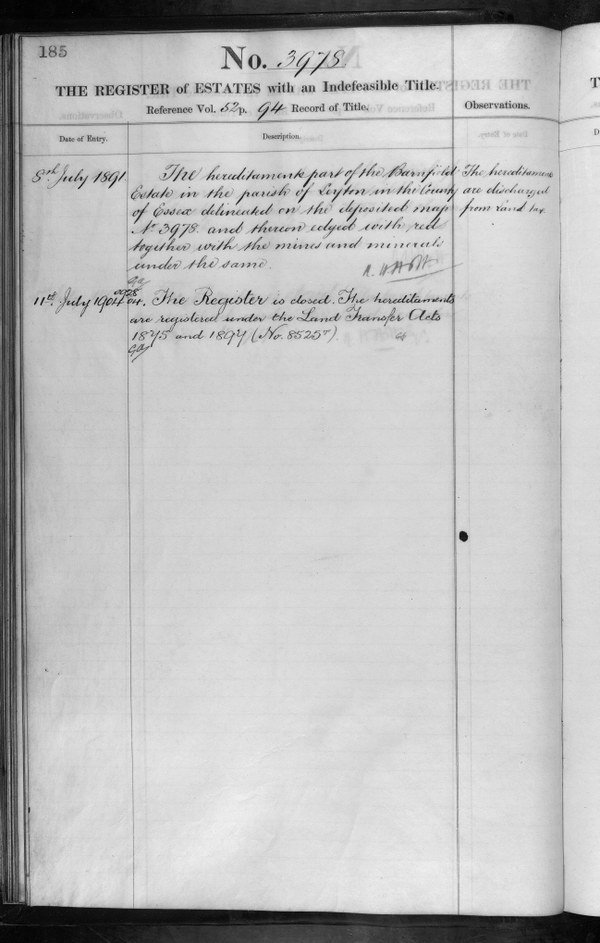 185
No. 3978
THE REGISTER of ESTATES with an Indefeasible Title.
Reference Vol. 52 p. 94 Record of Title.
Observations.
Date of Entry.
Description.
8th July 1891.
The hereditaments part of the Barnfield
Estate in the parish of Leyton in the County
of Essex delineated on the deposited map
No 3978. and thereon edged with red
together with the mines and minerals
under the same.
The hereditaments
are discharged
from Land tax.
11th July 1904.
The Register is closed. The hereditaments
are registered under the Land Transfer Acts
1875 and 1897 (No. 8525